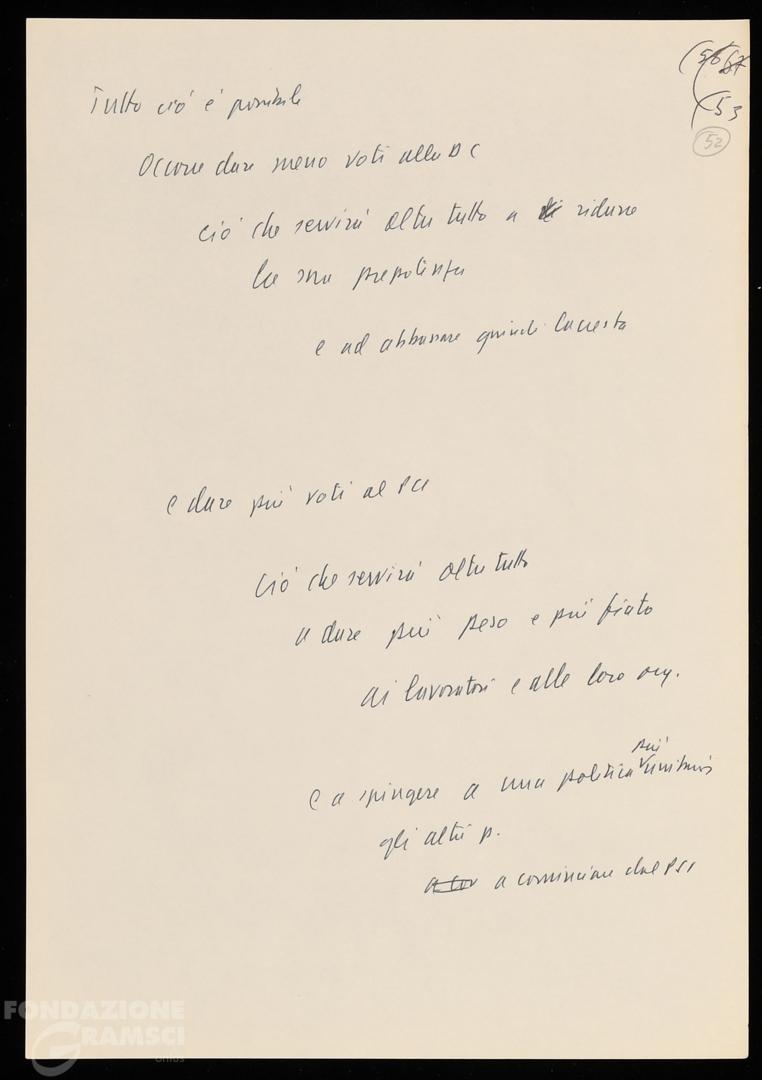 (56 57
(53
52
Tutto ciò è possibile
Occorre dare meno voti alla DC
ciò che servirà oltre tutto a ridurre
la sua prepotenza
e ad abbassare quindi la cresta
e dare più voti al PCI
Ciò che servirà oltre tutto
a dare più peso e più fiato
ai lavoratori e alle loro org.
e a spingere a una politica più unitaria
gli altri p.
a com a cominciare dal PSI
FONDAZIONE
GRAMSCI
onlus